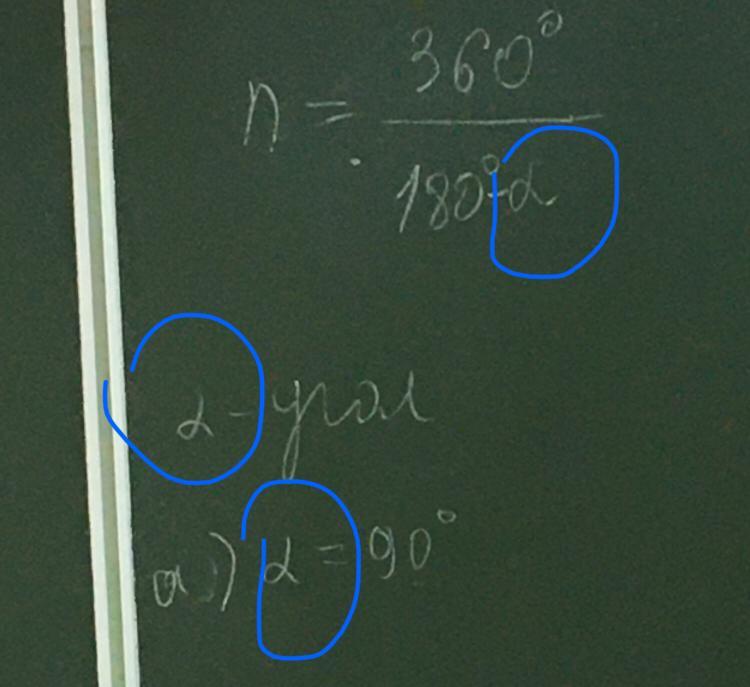 n = 360° / 180°-α
α - угол
а) α = 90°